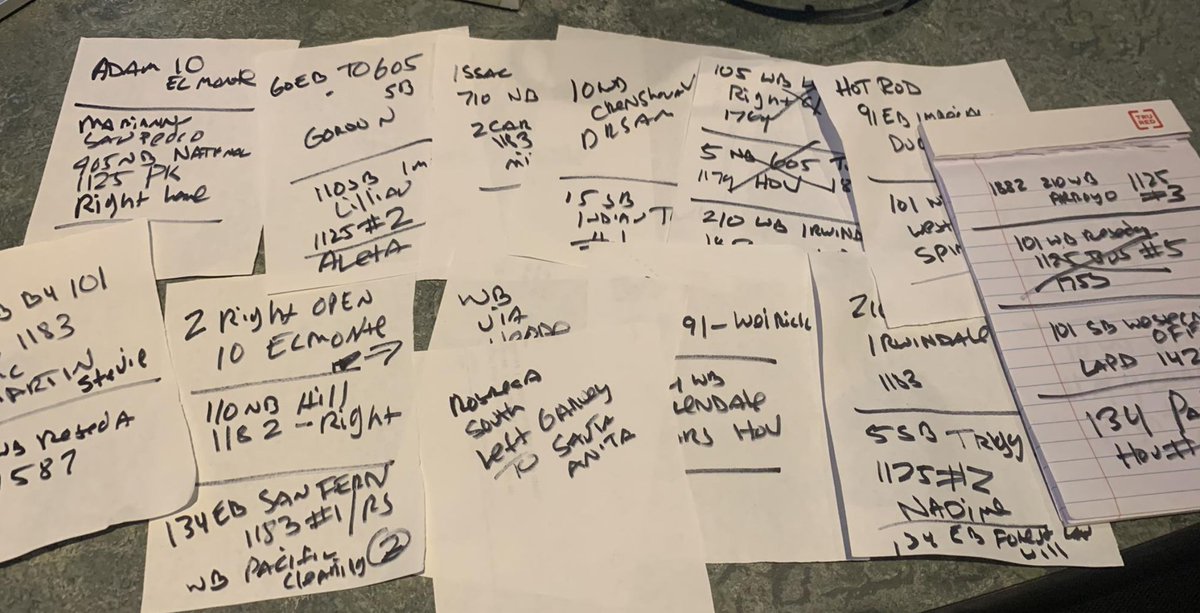 ADAM 10
EL MONTE
MARIANNA
SAN PEDRO
405 NB NATIONAL
1125 PK
Right Lane
60EB TO 605
SB
GORDON
110SB
Lillian
1125 #2
ALETA
ISSAC
710 NB
2 CAR
1183
10 WB
CRENSHAW
15 SB
INDIAN T
#1
105 WB
Right
5 NB 605
1179 HOV
210 WB IRWIND
HOT ROD
91 EB
101 N
West
TRU
RED
1882 210 WB 1125
ARROYO #3
101 WB Reseda
1125 #5
1753
101 SB
LAPD 147
134 Pa
HOV #
B4 101
1183
MARTIN
Stevie
WB RESEDA
1587
2 Right OPEN
10 EL MONTE
110 NB Hill
1182 - Right
134 EB SAN FERN
1183 #1/RS
WB PACIFIC
Clearing 2
WB
VIA
South
Left
TO SANTA
ANITA
91 -
WB
HOV
IRWINDALE
1183
5 SB
1125 #2
NADINE
134 EB Forest